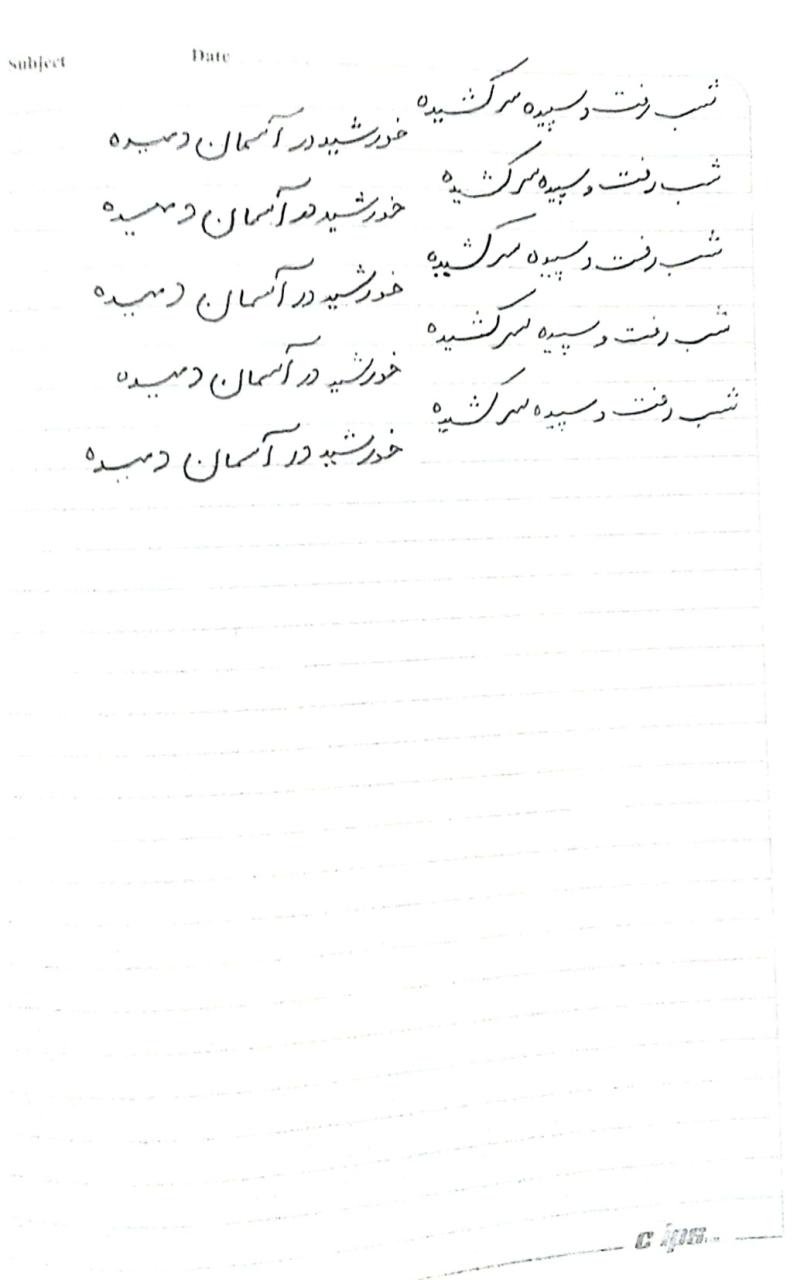 Subject
Date
شب رفت و سپیده سر کشیده
خورشید در آسمان دمیده
شب رفت و سپیده سر کشیده
خورشید در آسمان دمیده
شب رفت و سپیده سر کشیده
خورشید در آسمان دمیده
شب رفت و سپیده سر کشیده
خورشید در آسمان دمیده
شب رفت و سپیده سر کشیده
خورشید در آسمان دمیده